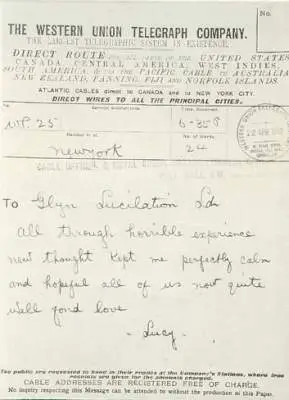 No.
THE WESTERN UNION TELEGRAPH COMPANY.
THE LARGEST TELEGRAPHIC SYSTEM IN EXISTENCE.
DIRECT ROUTE FOR ALL PARTS OF THE UNITED STATES
CANADA, CENTRAL AMERICA, WEST INDIES,
SOUTH AMERICA, & to the PACIFIC CABLE to AUSTRALIA
NEW ZEALAND, FANNING, FIJI and NORFOLK ISLANDS.
ATLANTIC CABLES direct to CANADA and to NEW YORK CITY.
DIRECT WIRES TO ALL THE PRINCIPAL CITIES.
Service Instructions.
25
Handed in at
No. of Words.
newyork
24
To Glyn Lucilation Ldn
all through horrible experience
new thought kept me perfectly calm
and hopeful all of us now quite
well fond love
- Lucy -
The public are requested to hand in their replies at the Company's Stations, where free
receipts are given for the amounts charged.
CABLE ADDRESSES ARE REGISTERED FREE OF CHARGE.
No inquiry respecting this Message can be attended to without the production of this Paper.